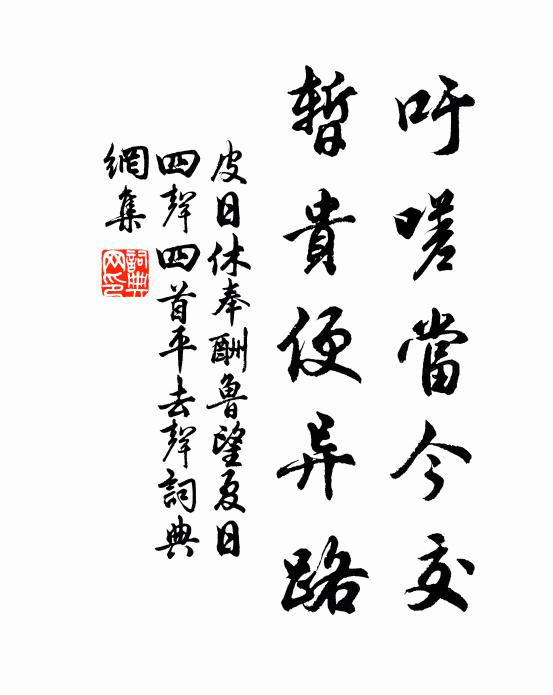 吁嗟當今交
暫貴便异路
皮日休奉酬魯望夏日
四聲四首平去聲詞典
網集
詞典網印